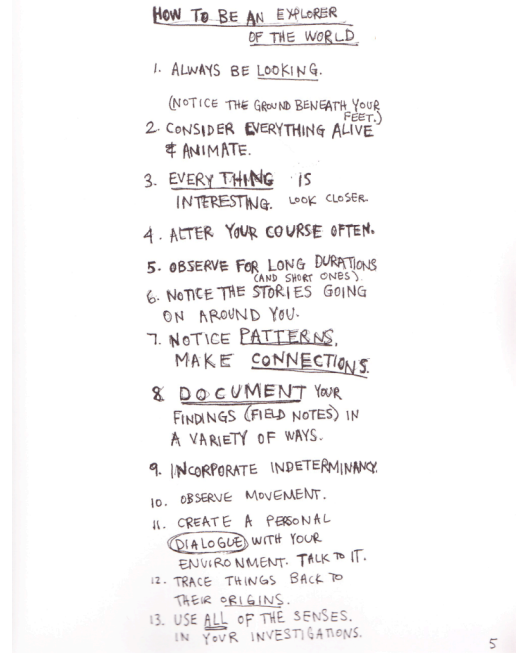 HOW TO BE AN EXPLORER
OF THE WORLD
1. ALWAYS BE LOOKING.
(NOTICE THE GROUND BENEATH YOUR
FEET.)
2. CONSIDER EVERYTHING ALIVE
& ANIMATE.
3. EVERY THING IS
INTERESTING. LOOK CLOSER.
4. ALTER YOUR COURSE OFTEN.
5. OBSERVE FOR LONG DURATIONS
(AND SHORT ONES).
6. NOTICE THE STORIES GOING
ON AROUND YOU.
7. NOTICE PATTERNS,
MAKE CONNECTIONS.
8. DOCUMENT YOUR
FINDINGS (FIELD NOTES) IN
A VARIETY OF WAYS.
9. INCORPORATE INDETERMINANCY.
10. OBSERVE MOVEMENT.
11. CREATE A PERSONAL
DIALOGUE WITH YOUR
ENVIRONMENT. TALK TO IT.
12. TRACE THINGS BACK TO
THEIR ORIGINS.
13. USE ALL OF THE SENSES.
IN YOUR INVESTIGATIONS.
5